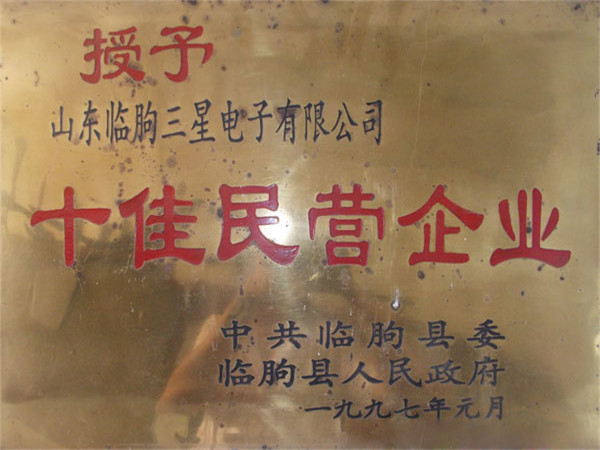 授予
山东临朐三星电子有限公司
十佳民营企业
中共临朐县委
临朐县人民政府
一九九七年元月